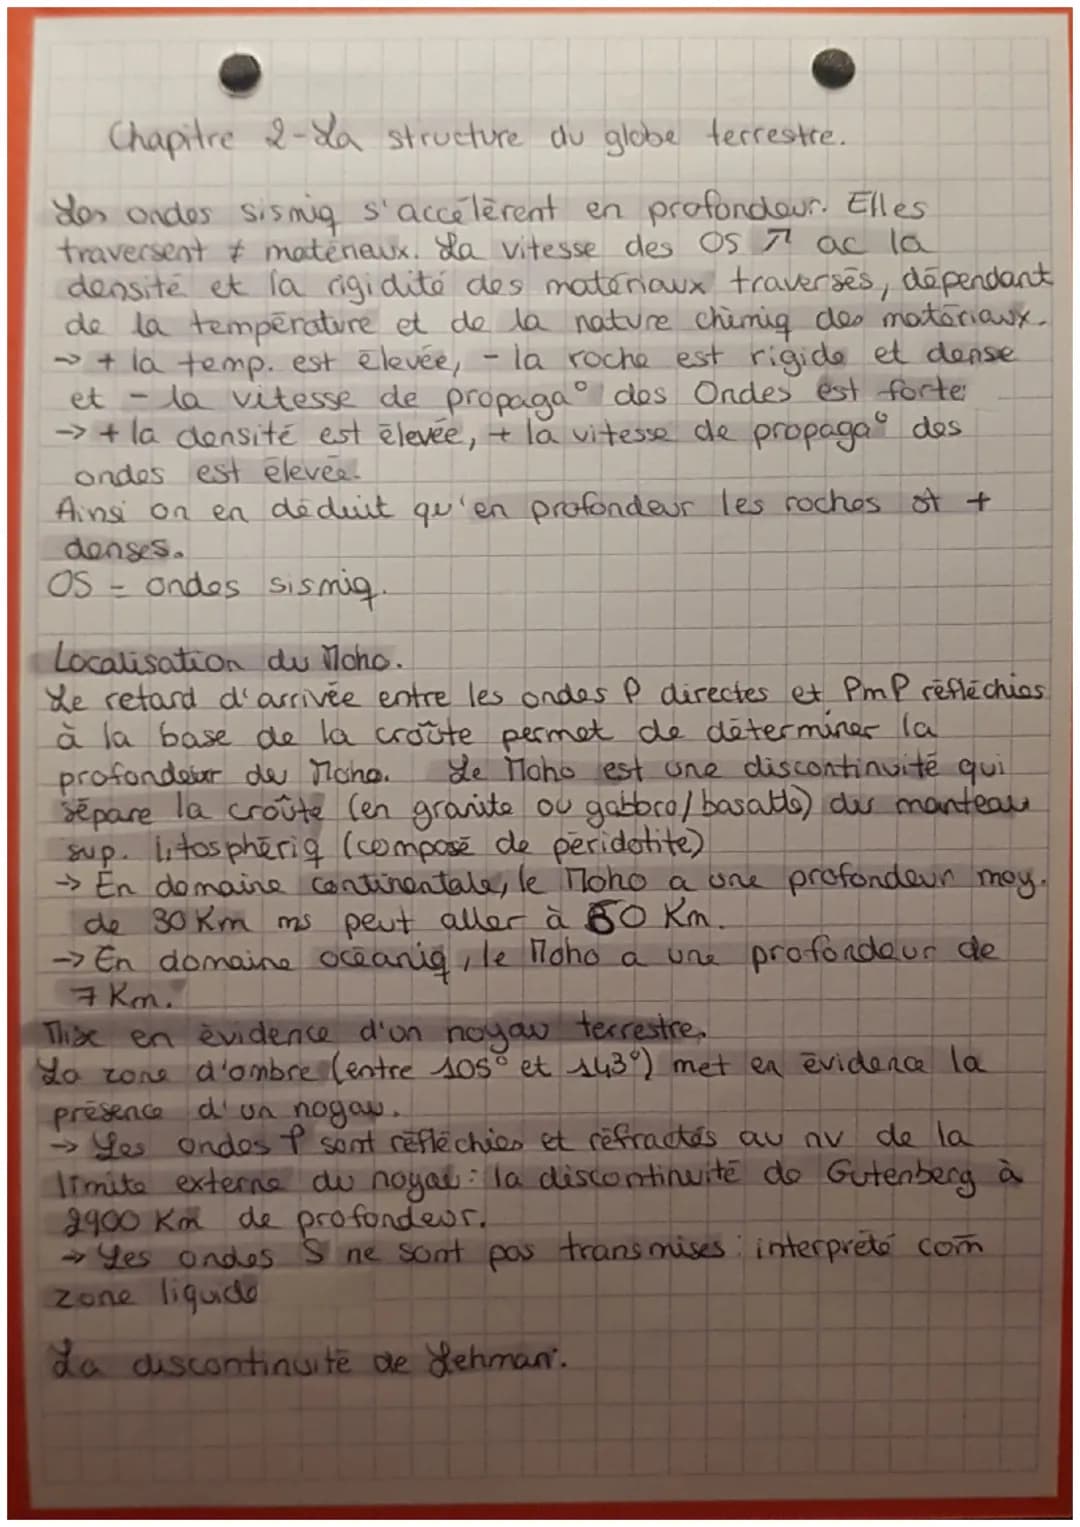 Chapitre 2-La structure du globe terrestre.
Les ondes sismiq s'accélèrent en profondeur. Elles
traversent ≠ matériaux. La vitesse des OS ↗ ac la
densité et la rigidité des matériaux traversés, dépendant
de la température et de la nature chimiq des matériaux.
→ + la temp. est élevée, - la roche est rigide et dense
et - la vitesse de propaga° des Ondes est forte
→ + la densité est élevée, + la vitesse de propaga° des
ondes est élevée.
Ainsi on en déduit qu'en profondeur les roches st +
denses.
OS = ondes sismiq.
Localisation du Moho.
Le retard d'arrivée entre les ondes P directes et PmP réfléchies
à la base de la croûte permet de déterminer la
profondeur du Moho. Le Moho est une discontinuité qui
sépare la croûte (en granite ou gabbro/basalte) du manteau
sup. litosphériq (composé de péridotite)
→ En domaine continentale, le Moho a une profondeur moy.
de 30 Km ms peut aller à Km.
→ En domaine océaniq, le Moho a une profondeur de
7 Km.
Mise en évidence d'un noyau terrestre.
La zone d'ombre (entre 105° et 143°) met en évidence la
présence d'un noyau.
→ Les ondes P sont réfléchies et réfractés au nv de la
limite externe du noyau : la discontinuité de Gutenberg à
2900 Km de profondeur.
→ Les ondes S ne sont pas transmises : interprété com̄
zone liquide
La discontinuité de Lehman.